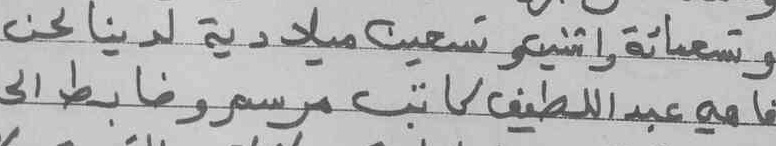 وتسعمائة واثنين وتسعين ميلادية لدينا نحن
عبد اللطيف كاتب مرسم وضابط الح